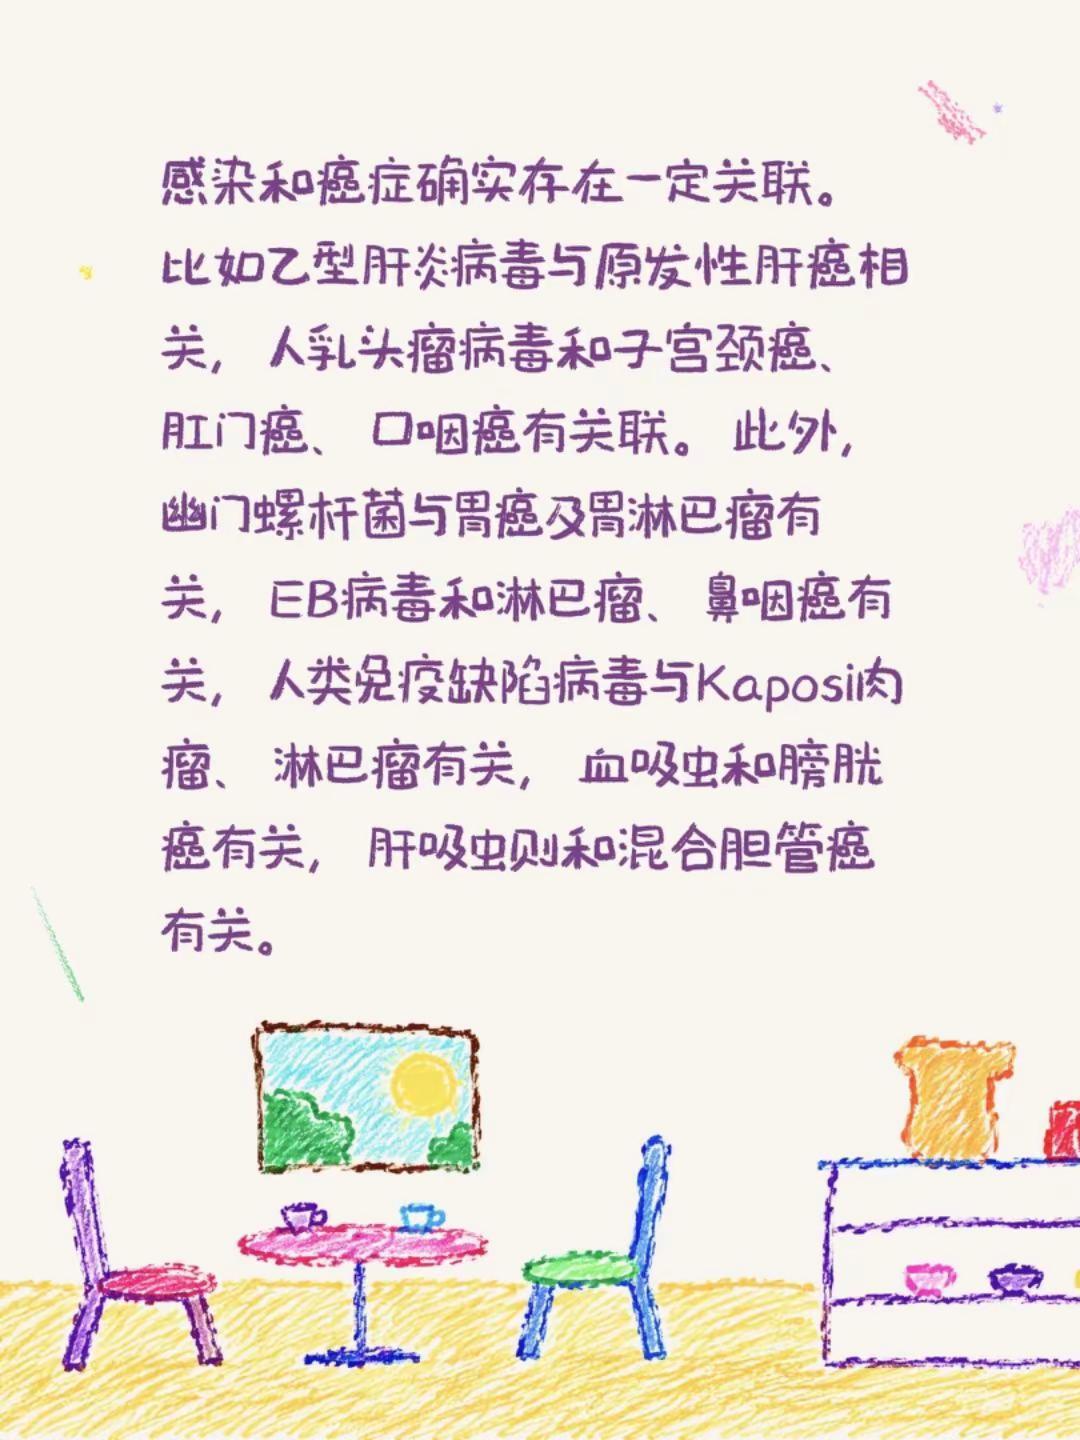 感染和癌症确实存在一定关联。
比如乙型肝炎病毒与原发性肝癌相
关，人乳头瘤病毒和子宫颈癌、
肛门癌、口咽癌有关联。此外，
幽门螺杆菌与胃癌及胃淋巴瘤有
关，EB病毒和淋巴瘤、鼻咽癌有
关，人类免疫缺陷病毒与Kaposi肉
瘤、淋巴瘤有关，血吸虫和膀胱
癌有关，肝吸虫则和混合胆管癌
有关。